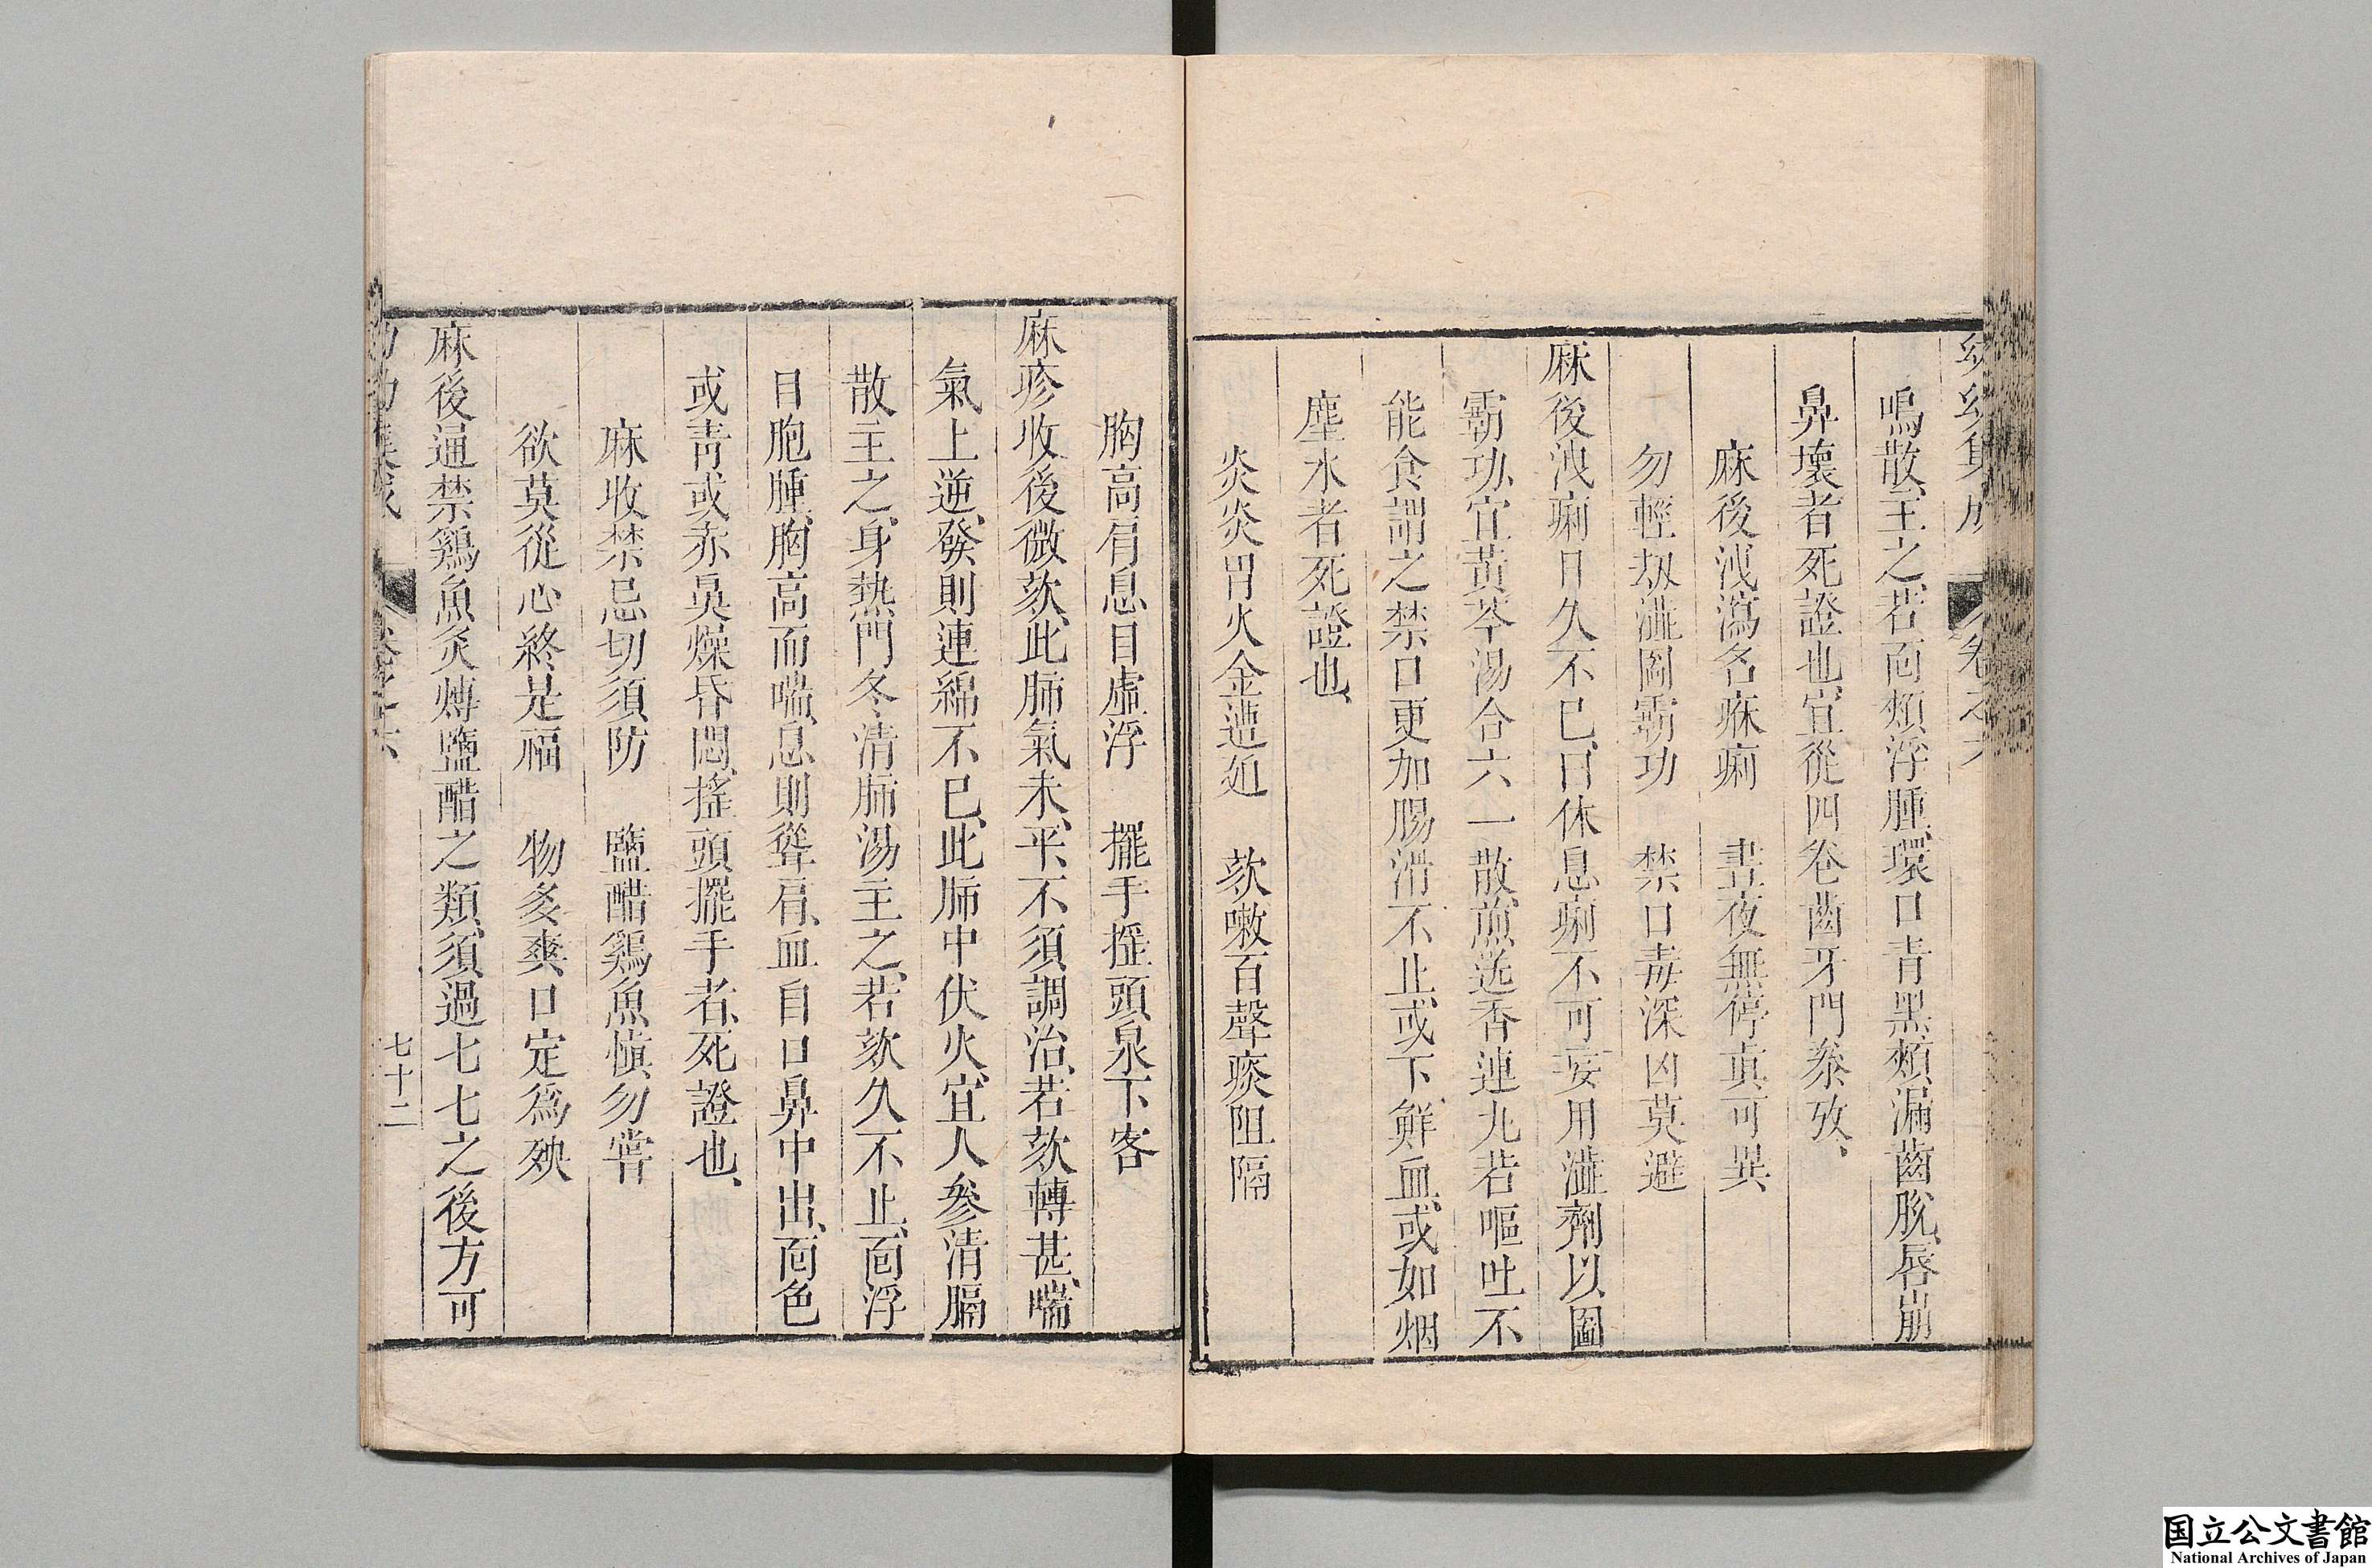 幼幼集成 卷之六
鳴散主之、若面頰浮腫、環口青黑、頰漏齒脫、唇崩
鼻壞者死證也、宜從四卷齒牙門叅攷、
麻後洩瀉名痳痢 晝夜無停真可異
勿輕刼澁圖霸功 禁口毒深凶莫避
麻後洩痢日久不已、曰休息痢、不可妄用澁劑以圖
霸功、宜黃芩湯合六一散、煎送香連丸、若嘔吐不
能食謂之禁口、更加腸滑不止、或下鮮血、或如烟
塵水者死證也、
炎炎胃火金遭廹 欬嗽百聲痰阻隔
胸高肩息目虛浮 擺手搖頭泉下客
麻疹收後微欬、此肺氣未平、不須調治、若欬轉甚、喘
氣上逆、發則連綿不已、此肺中伏火、宜人參清膈
散主之、身熱門冬清肺湯主之、若欬久不止、面浮
目胞腫、胸高而喘、息則聳肩、血自口鼻中出、面色
或青或赤、鼻燥昏悶、搖頭擺手者、死證也、
麻收禁忌切須防 鹽醋鷄魚慎勿嘗
欲莫從心終是福 物多爽口定爲殃
麻後逼禁鷄魚炙煿鹽醋之類、須過七七之後方可
幼幼集成 卷之六 七十二
国立公文書館
National Archives of Japan